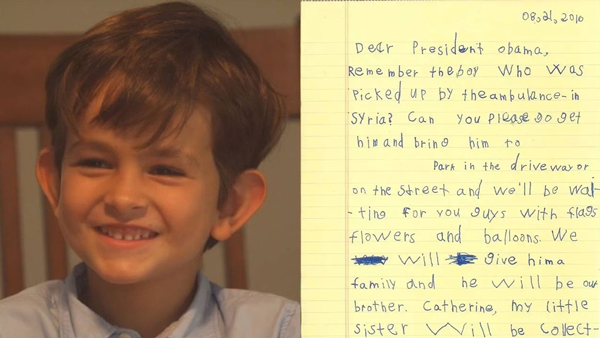 08,21,2010
Dear President obama,
Remember the boy who was
picked up by the ambulance in
Syria? Can you please go get
him and bring him to
Park in the driveway or
on the street and we'll be wai-
-ting for you guys with flags
flowers and balloons. We
will give him a
family and he will be our
brother. Catherine, my little
sister will be collect-